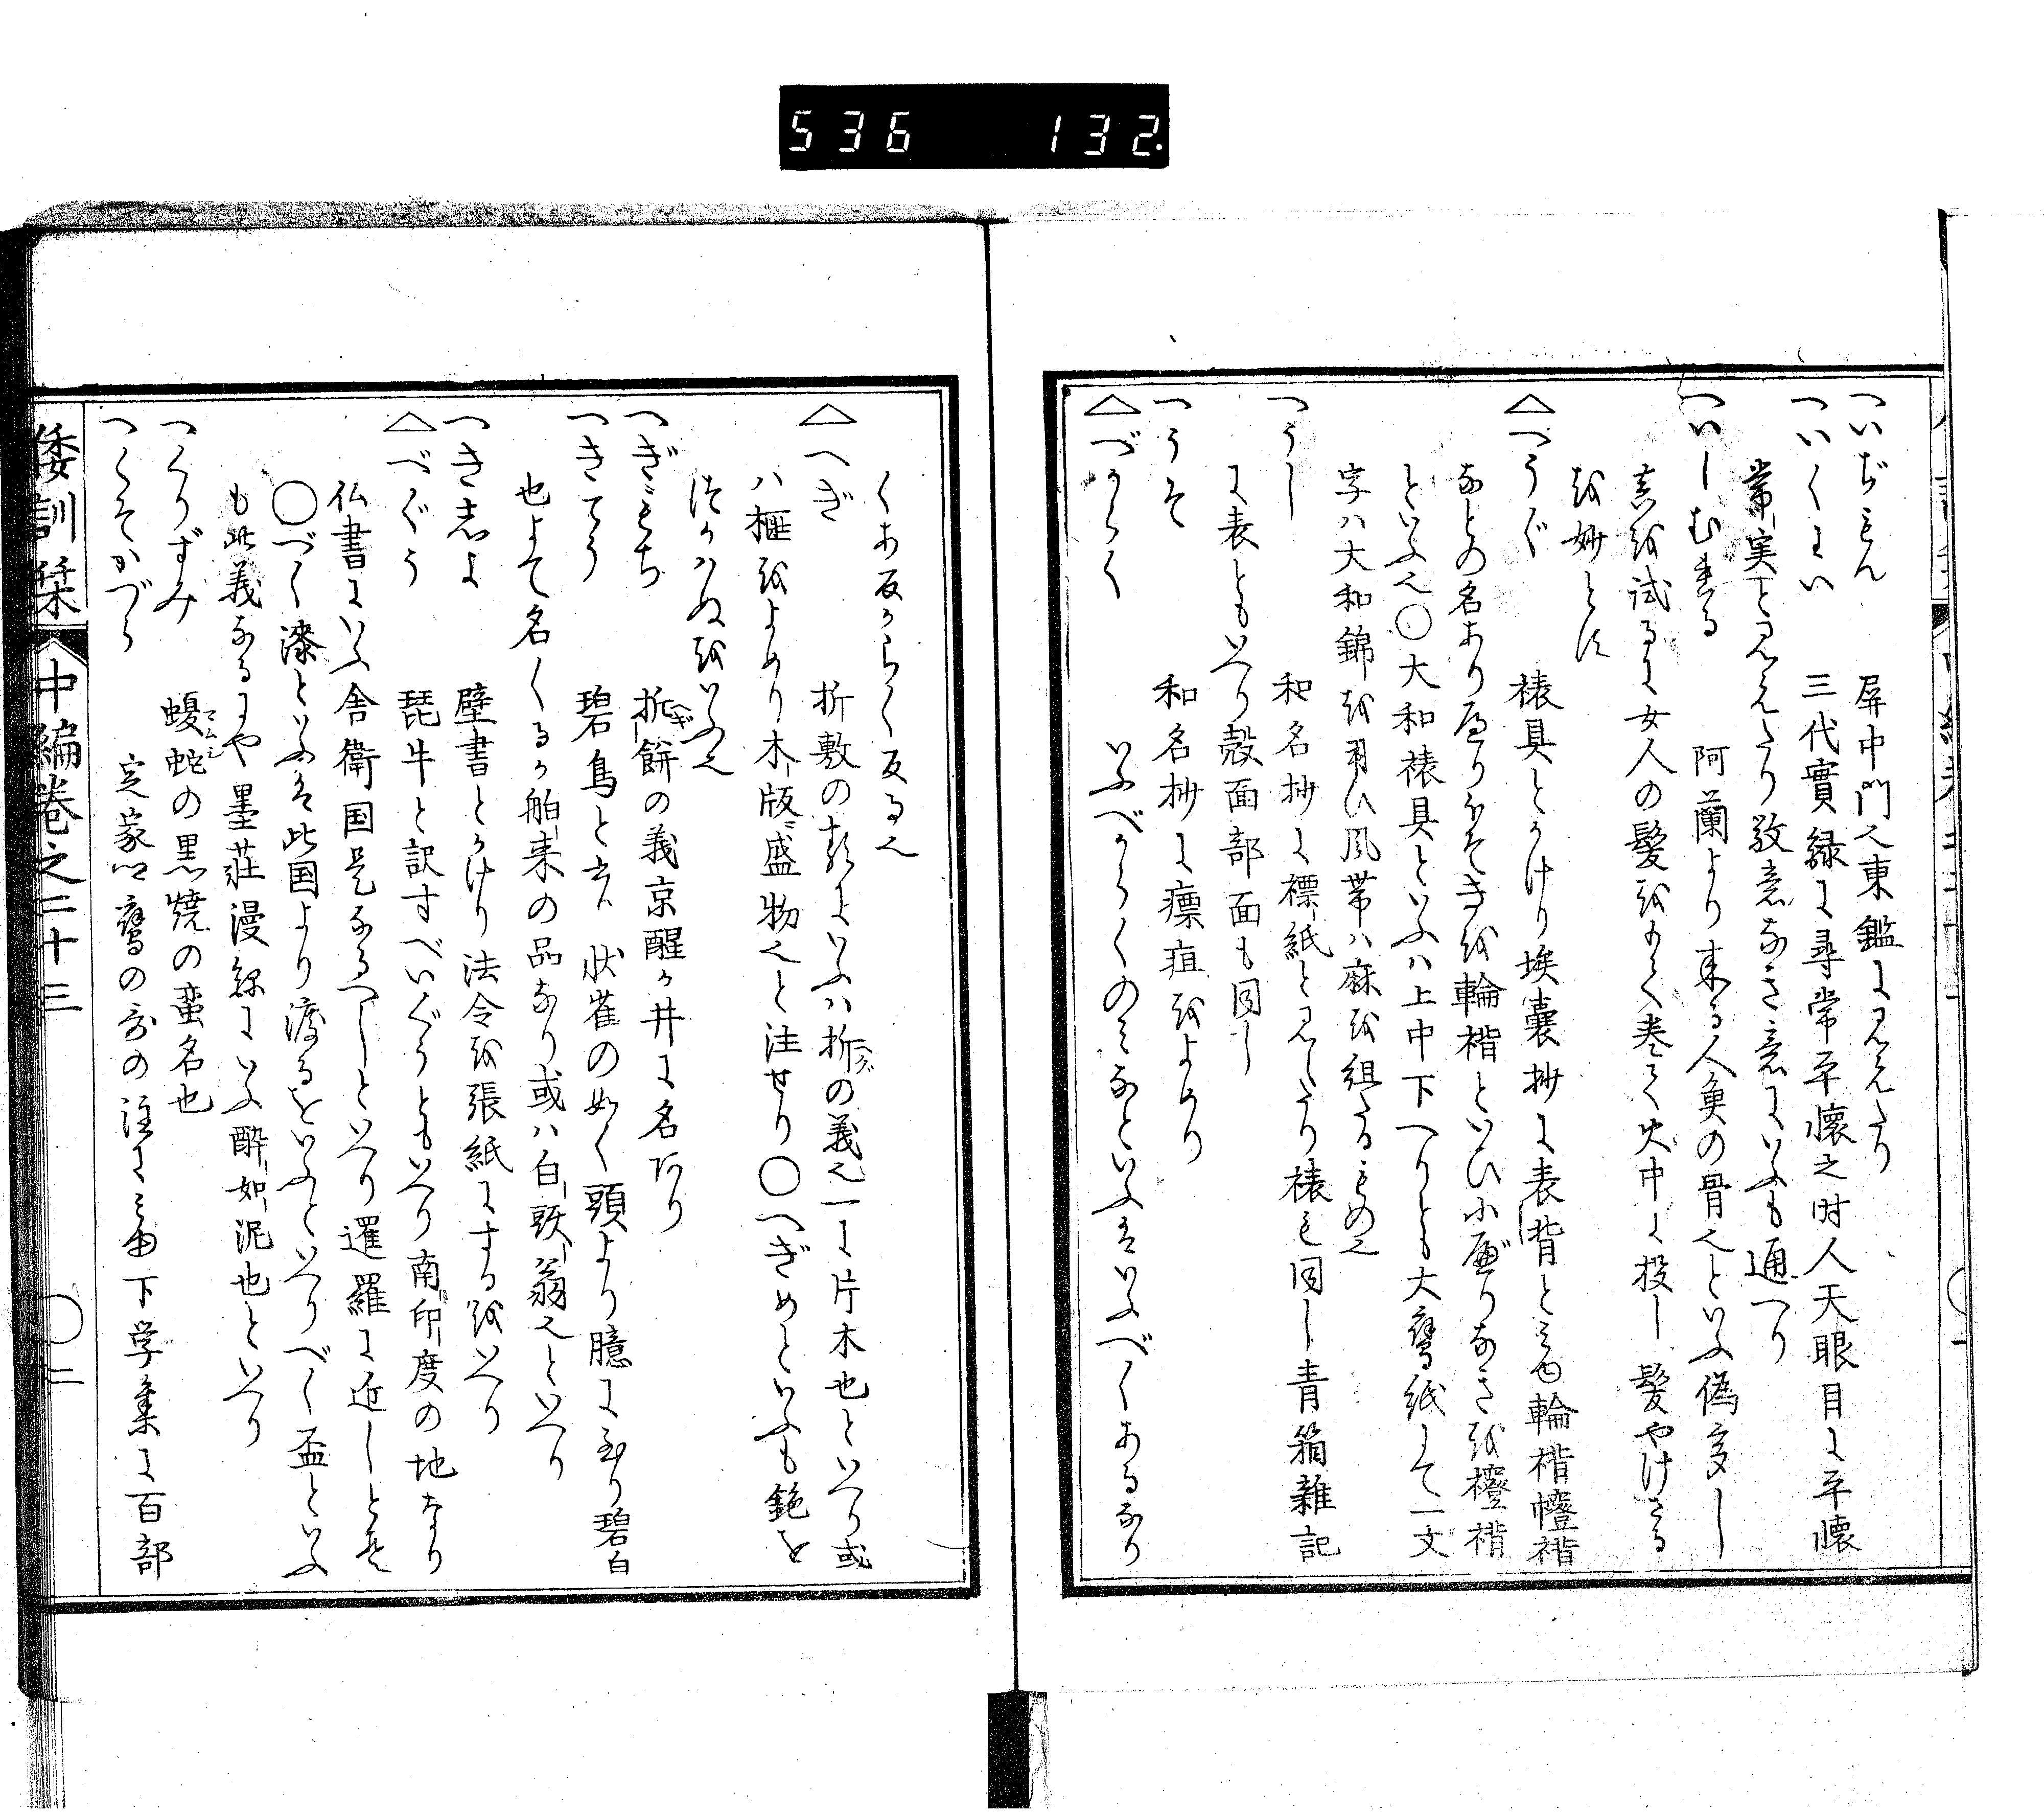 536 132.
へいぢもん 屏中門也東鑑に見えたり
へいくわい 三代實録に尋常平懐之時人天眼目に平懐
常実と見えたり敬意なき意にいふも通へり
へいしむれる 阿蘭より来る人魚の骨也といふ偽多し
真を試るに女人の髪をもて巻て火中に投し髪やけさる
を妙とす
△へうぐ 裱具とかけり埃嚢抄に表背とみゆ輪楷幰楷
なとの名あり
といふ也〇大和裱具といふハ上中下へりとも大鷹紙にて一文
字ハ大和錦を用ひ風帯ハ麻を組たるもの也
へうし 和名抄に標紙と見えたり裱も同し青箱雜記
に表ともいへり殻面部面も同し
へうそ 和名抄に瘭疽をよめり
△べからく いふべからくのミなといふはいふべくあるなり
くあ反からく反る也
△へぎ 折敷の類にいふハ折の義也一に片木也といへり或
ハ榧をよめり木版盛物也と注せり〇へぎめといふも鉋を
つかハぬをいふ也
へぎもち 折餅の義京醒か井に名あり
へきてう 碧鳥と書り状雀の如く頭より臆に至り碧白
也よて名くるか舶来の品なり或ハ白頭翁也といへり
へきしよ 壁書とかけり法令を張紙にするをいへり
△べぐう 琵牛と訳すべいぐうともいへり南印度の地なり
仏書にいふ舎衛国是なるへしといへり暹羅に近しとそ
〇べく漆といふは此国より渡るをいふといへりべく盃といふ
も此義なるにや墨荘漫録にいふ酔如泥也といへり
へくりずみ 蝮蛇の黒焼の蛮名也
へくそかづら 定家卿鷹の哥の注にみゆ下学集に百部
倭訓栞 中編巻之二十三 〇二